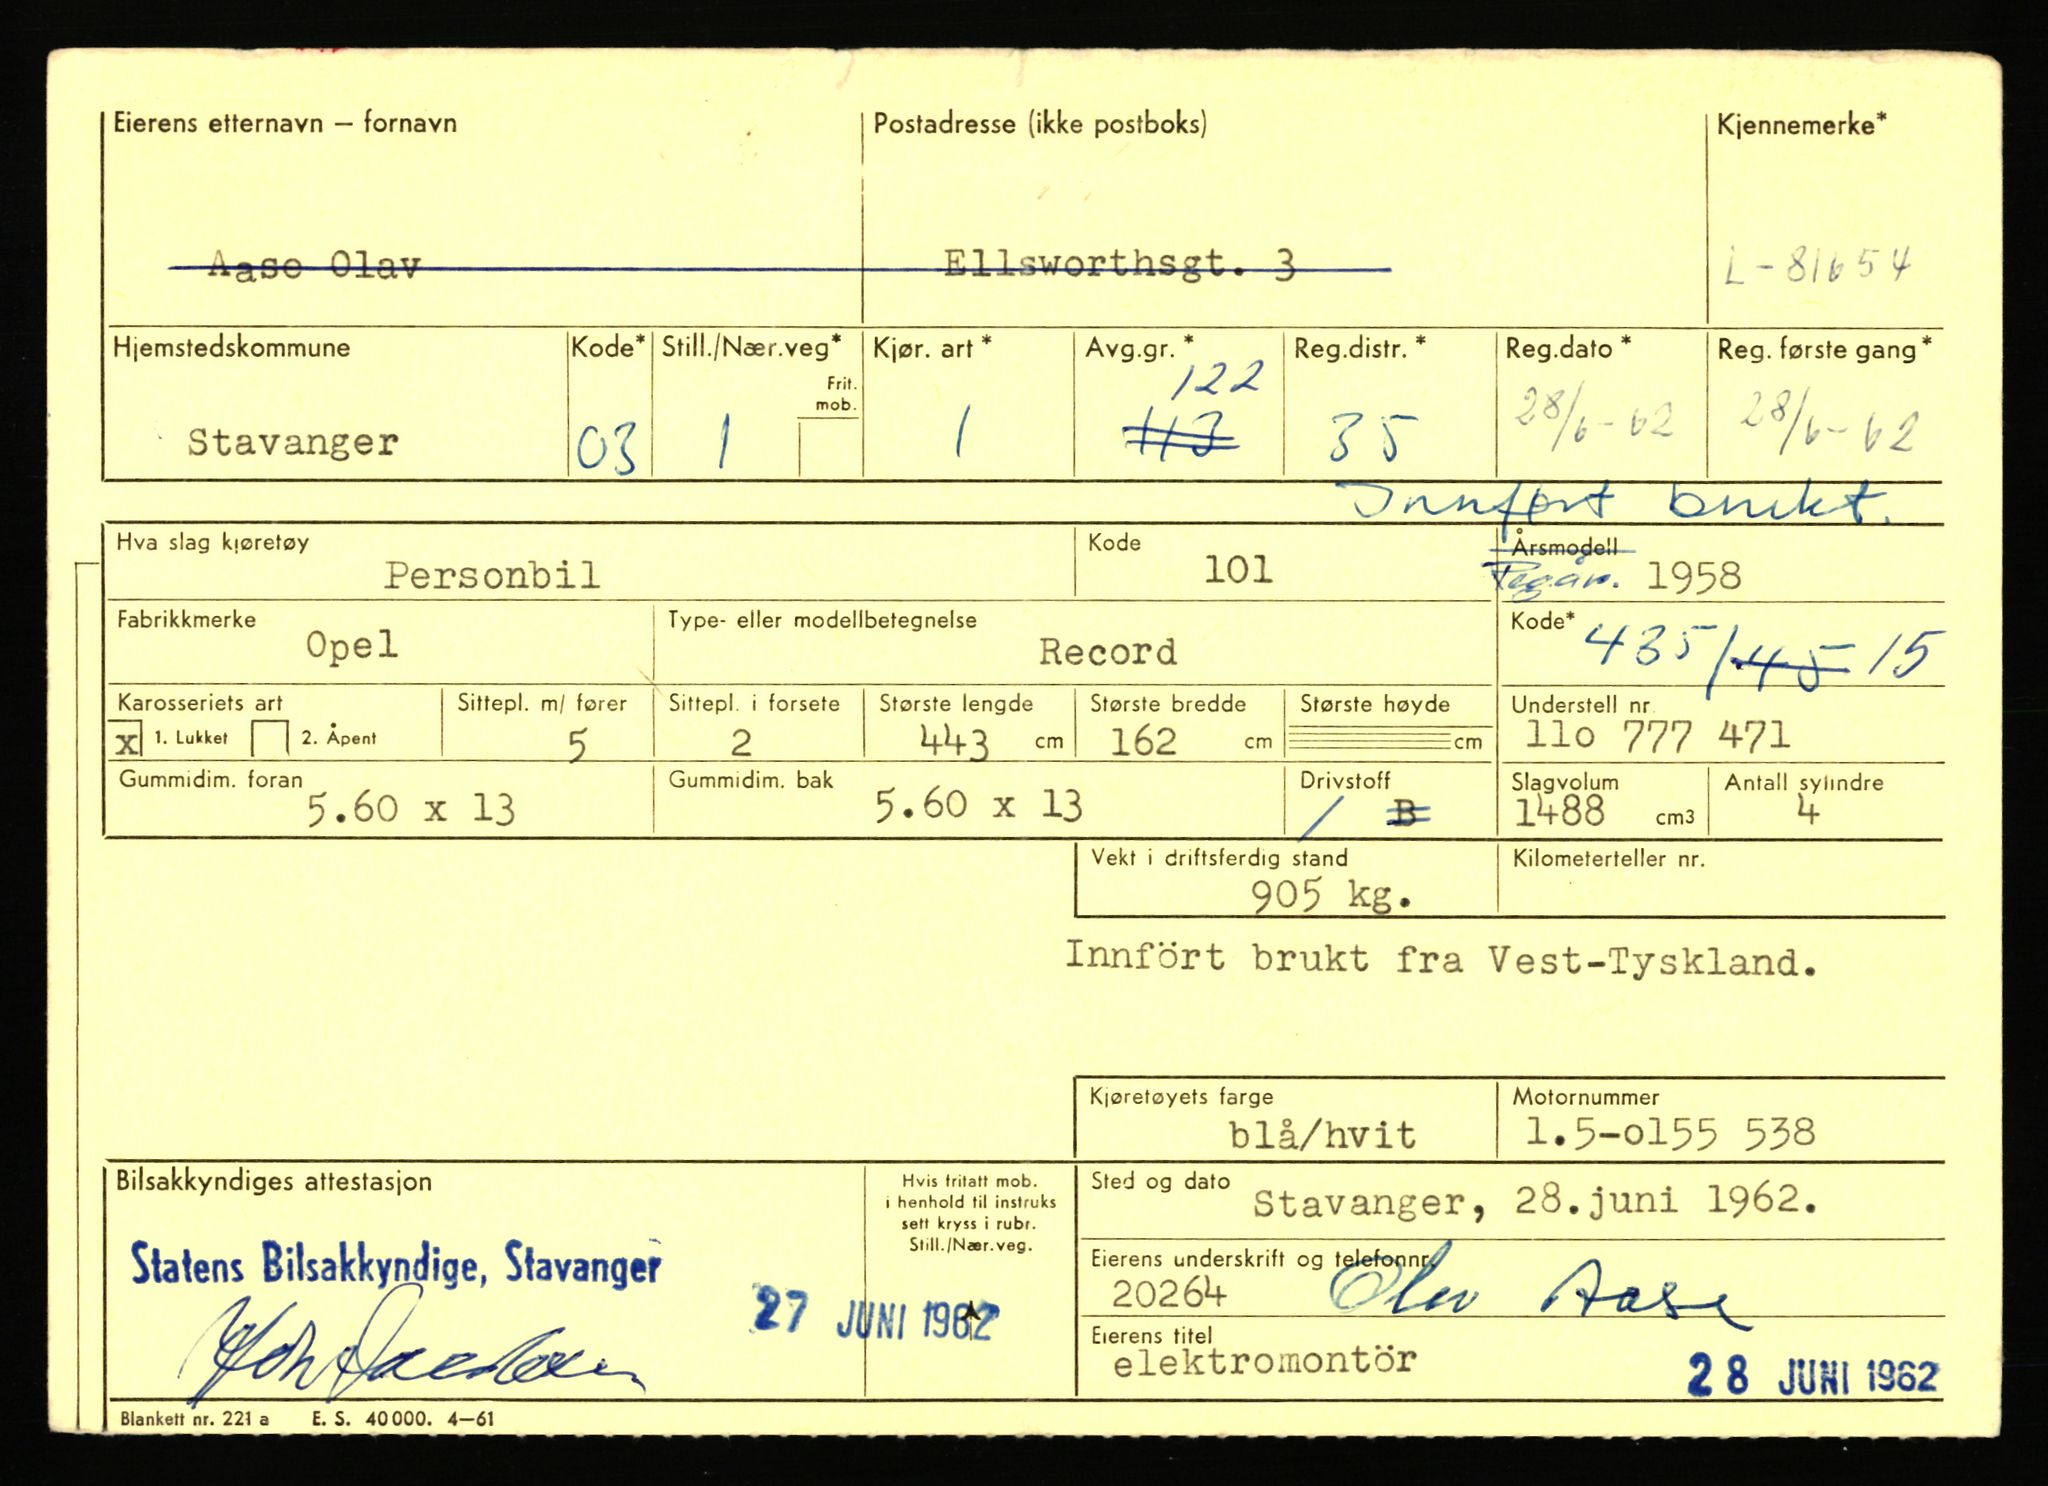 Eierens etternavn – fornavn Postadresse (ikke postboks) Kjennemerke*
Aase Olav Ellsworthsgt. 3 L-81654
Hjemstedskommune Kode* Still./Nær.veg* Kjør. art* Avg.gr.* Reg.distr.* Reg.dato* Reg. første gang*
Frit. mob. 122
Stavanger 03 1 1 113 35 28/6-62 28/6-62
Innført brukt.
Hva slag kjøretøy Kode Årsmodell
Personbil 101 Reg.år. 1958
Fabrikkmerke Type- eller modellbetegnelse Kode*
Opel Record 435/45 15
Karosseriets art Sittepl. m/ fører Sittepl. i forsete Største lengde Største bredde Største høyde Understell nr.
x 1. Lukket 2. Åpent 5 2 443 cm 162 cm cm 11o 777 471
Gummidim. foran Gummidim. bak Drivstoff Slagvolum Antall sylindre
5.60 x 13 5.60 x 13 1 B 1488 cm3 4
Vekt i driftsferdig stand Kilometerteller nr.
905 kg.
Innfört brukt fra Vest-Tyskland.
Kjøretøyets farge Motornummer
blå/hvit 1.5-o155 538
Bilsakkyndiges attestasjon Hvis fritatt mob.
i henhold til instruks
sett kryss i rubr.
Still./Nær.veg.
Sted og dato Stavanger, 28.juni 1962.
Statens Bilsakkyndige, Stavanger
27 JUNI 1962
Eierens underskrift og telefonnr.
20264 Olav Aase
Eierens titel
elektromontör 28 JUNI 1962
Blankett nr. 221 a E. S. 40 000. 4—61